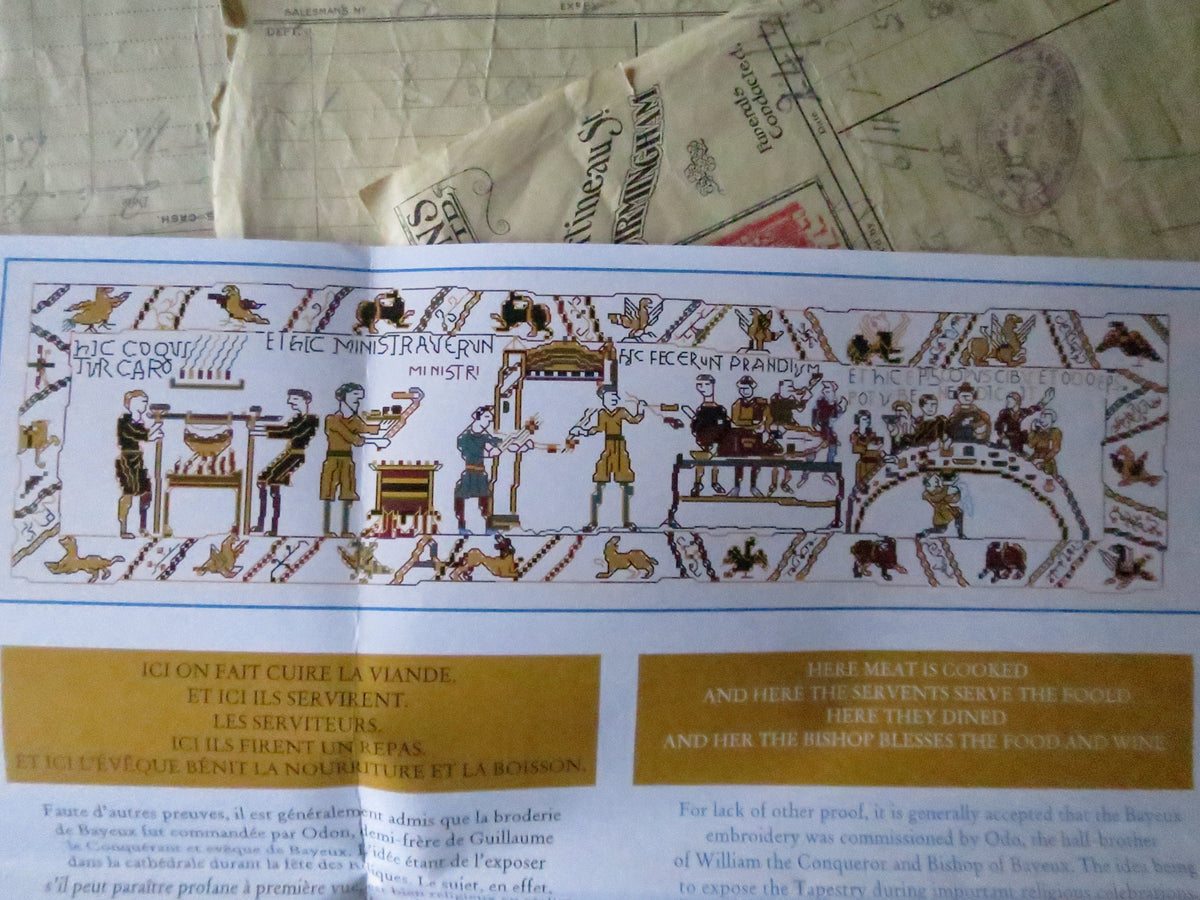 SALESMAN'S No
DEPT.
Funerals
Conducted.
Date
tineau St.
RMINGHAM
NS
LTD.
CASH.
HIC COQVI
TVR CARO
ET HIC MINISTRAVERVN
MINISTRI
HIC FECERVNT PRANDIVM
ET HIC EPISCOPVS CIBV ET
POTV BENEDICIT
ICI ON FAIT CUIRE LA VIANDE.
ET ICI ILS SERVIRENT.
LES SERVITEURS.
ICI ILS FIRENT UN REPAS.
ET ICI L'ÉVÊQUE BÉNIT LA NOURRITURE ET LA BOISSON.
HERE MEAT IS COOKED
AND HERE THE SERVENTS SERVE THE FOOLD
HERE THEY DINED
AND HER THE BISHOP BLESSES THE FOOD AND WINE
Faute d'autres preuves, il est généralement admis que la broderie
de Bayeux fut commandée par Odon, demi-frère de Guillaume
le Conquérant et evêque de Bayeux. L'idée étant de l'exposer
dans la cathédrale durant la fête des Reliques. Le sujet, en effet,
s'il peut paraître profane à première vue,
For lack of other proof, it is generally accepted that the Bayeux
embroidery was commissioned by Odo, the half-brother
of William the Conqueror and Bishop of Bayeux. The idea being
to expose the Tapestry during important religious celebrations